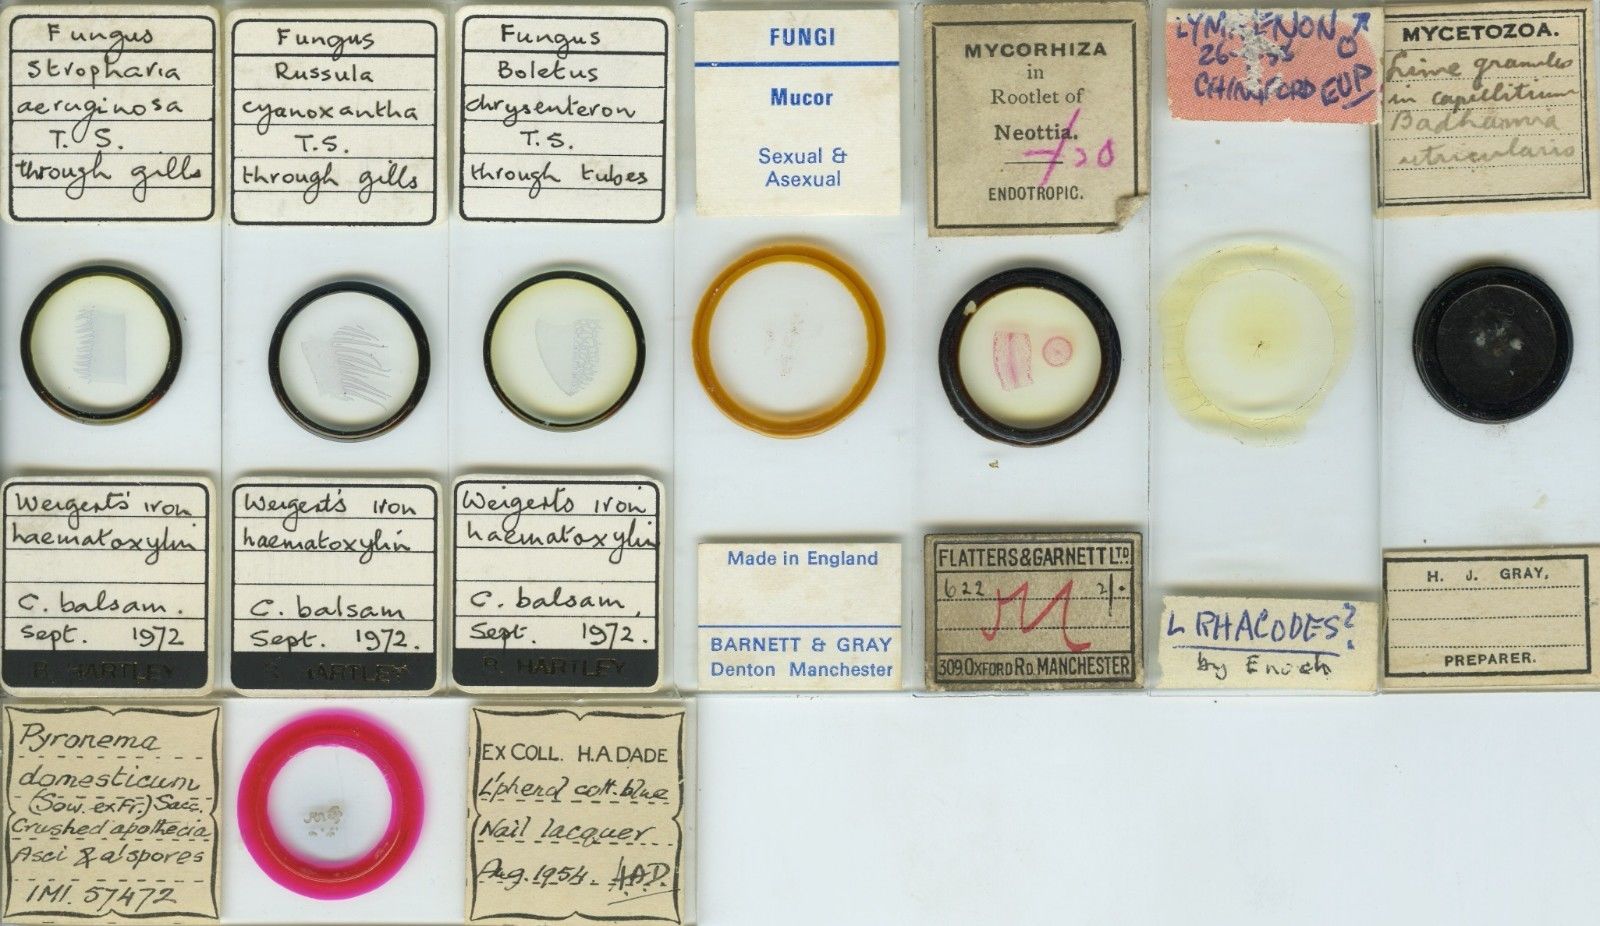 Fungus
Stropharia
aeruginosa
T. S.
through gills
Weigert's iron
haematoxylin
C. balsam.
Sept. 1972
R. HARTLEY
Fungus
Russula
cyanoxantha
T.S.
through gills
Weigert's iron
haematoxylin
C. balsam
Sept. 1972.
R. HARTLEY
Fungus
Boletus
chrysenteron
T.S.
through tubes
Weigert's iron
haematoxylin
C. balsam,
Sept. 1972.
R. HARTLEY
FUNGI
Mucor
Sexual &
Asexual
Made in England
BARNETT & GRAY
Denton Manchester
MYCORHIZA
in
Rootlet of
Neottia.
ENDOTROPIC.
FLATTERS & GARNETT LTD
622 2/-
309. OXFORD RD. MANCHESTER
♂
CHINGFORD EUP
L RHACODES?
by Enoch
MYCETOZOA.
Lime granules
in capillitium
Badhamia
utricularis
H. J. GRAY,
PREPARER.
Pyronema
domesticum
(Sow. ex Fr.) Sacc.
Crushed apothecia
Asci & a'spores
IMI. 57472
EX COLL. H.A. DADE
L'phenol cott. blue
Nail lacquer
Aug. 1954. HAD.